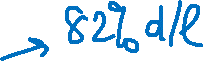 → 82% d/l